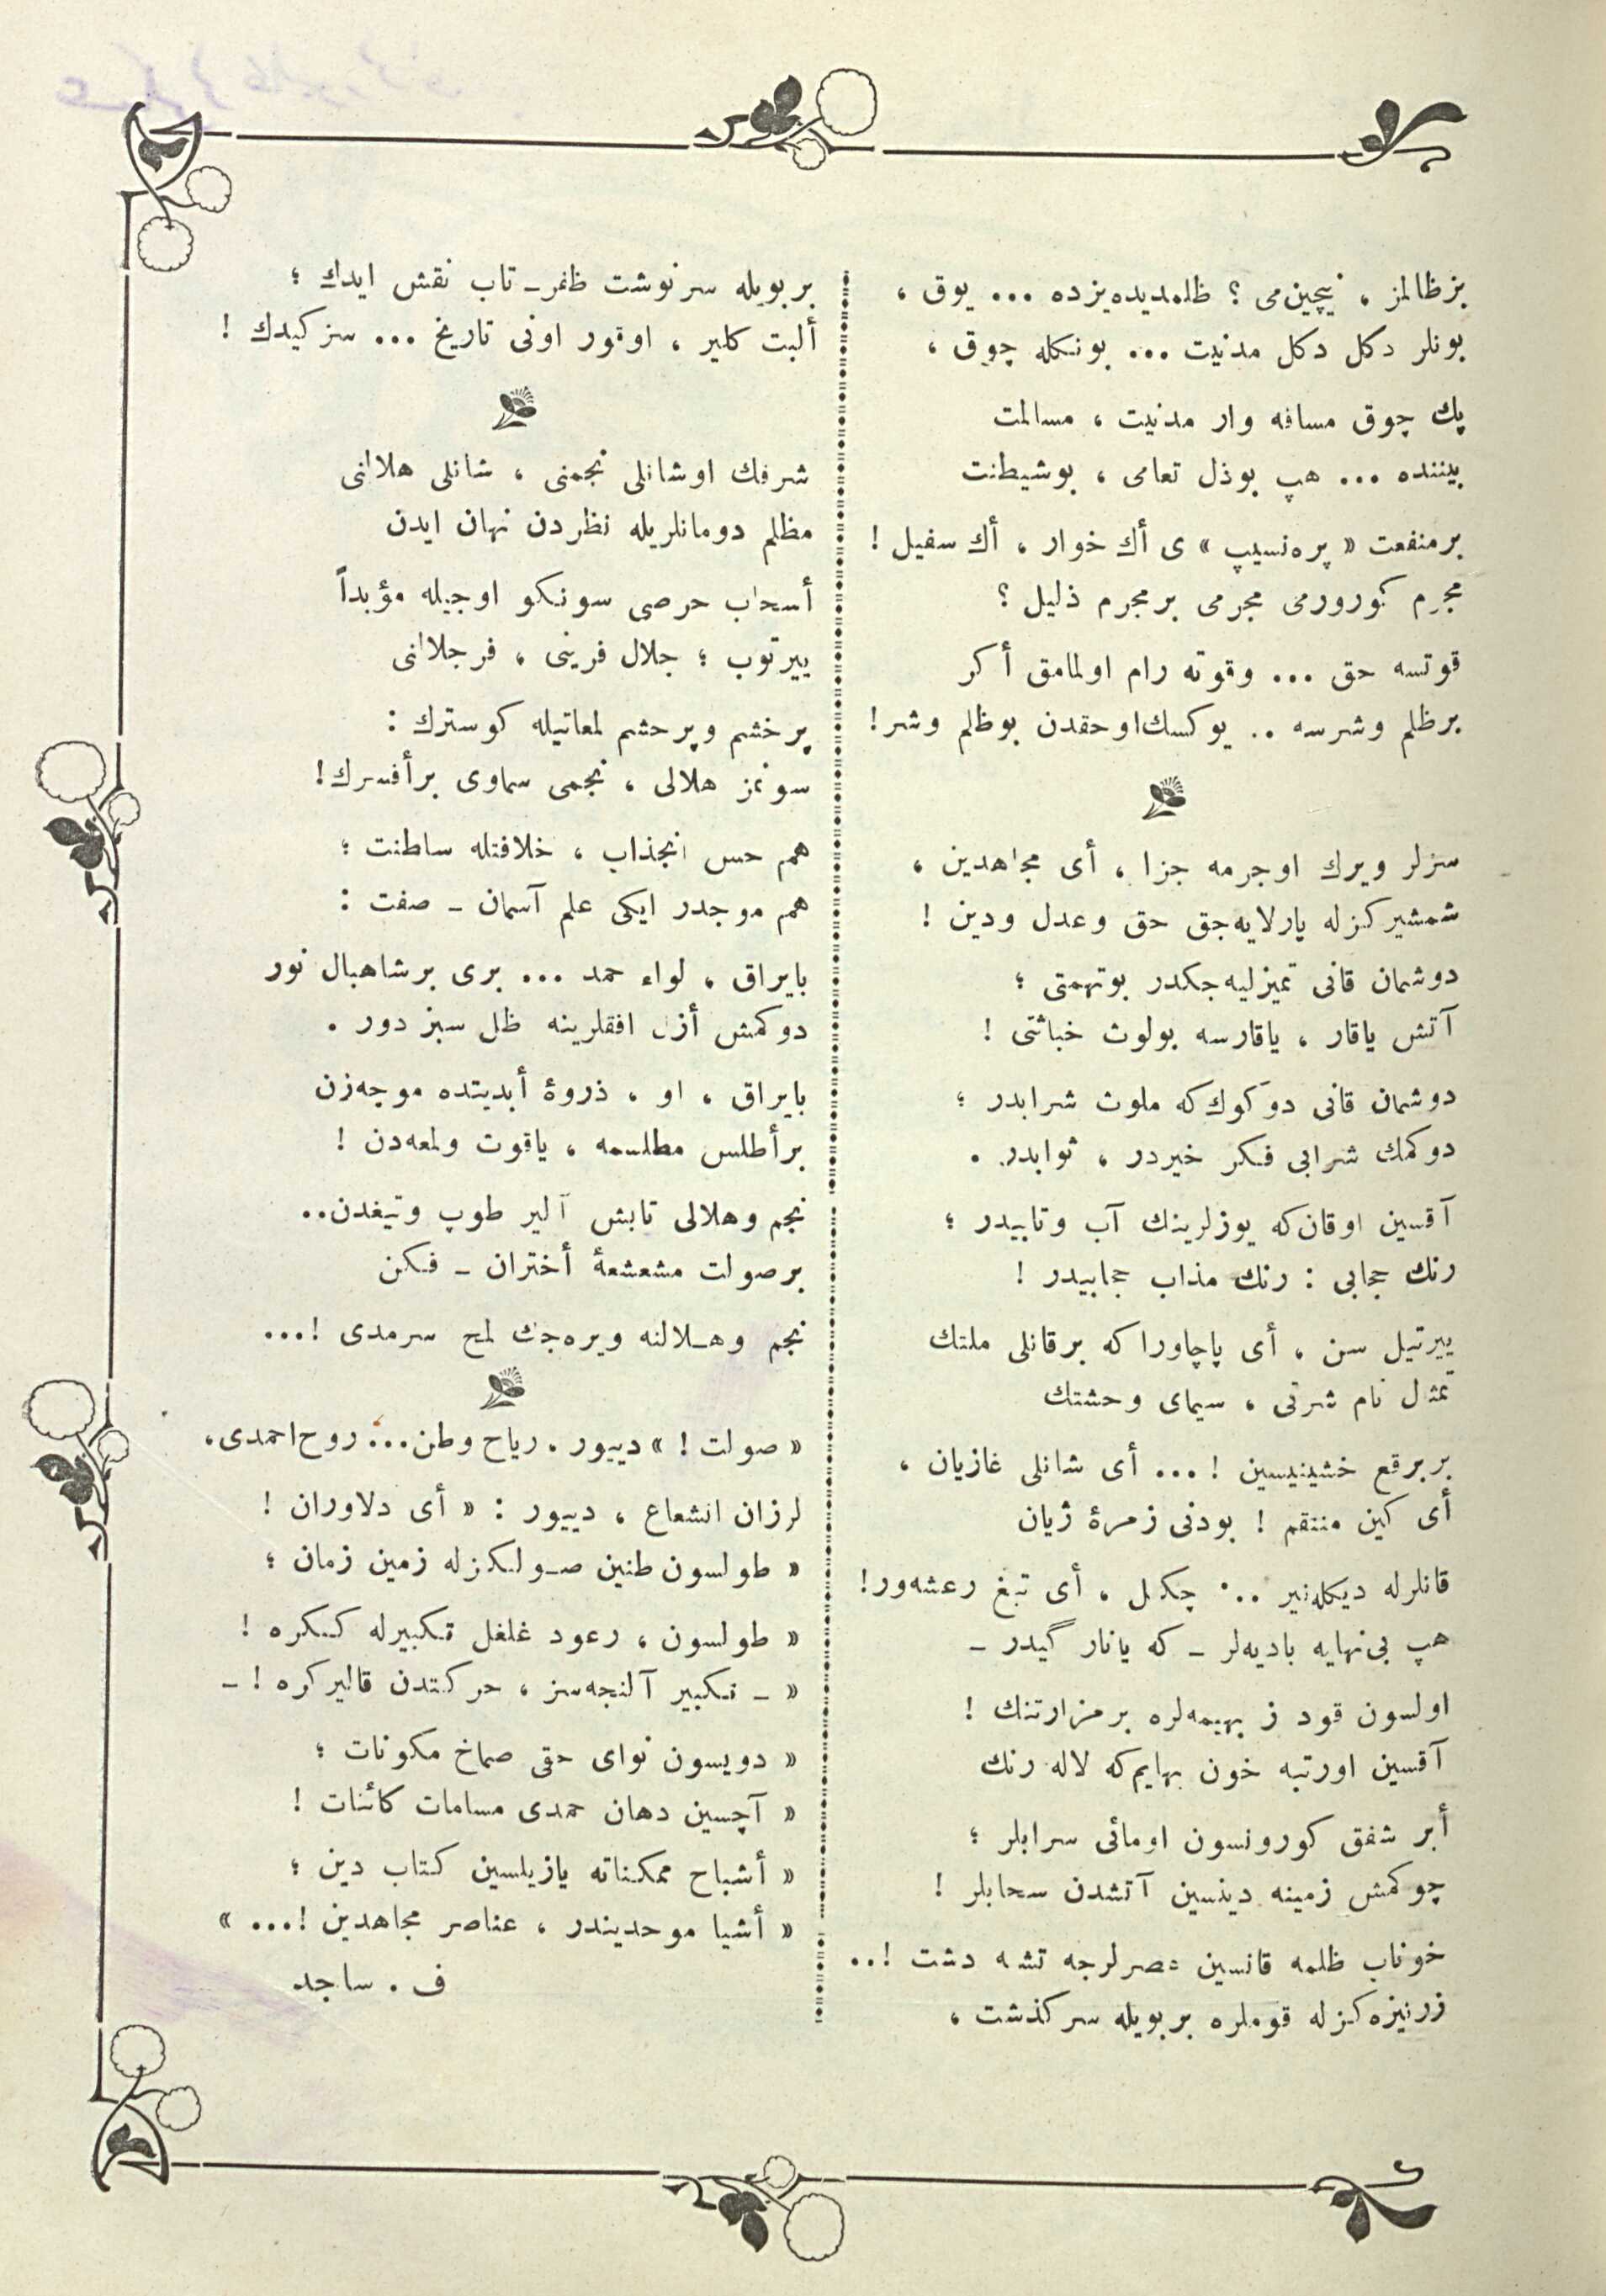 بز ظالمز ، نیچین‌می ؟ ظلمدیده‌یز ده ... یوق ،
بونلر دکل دکل مدنیت ... بونکله چوق ،
پك چوق مسافه وار مدنیت ، مسالمت
بیننده ... هپ بو ذل تعامی ، بو شیطنت
بر منفعت « پره‌نسیپ » ی أك خوار ، أك سفیل !
مجرم کورورمی مجرمی بر مجرم ذلیل ؟
قوتسه حق ... وقوته رام اولمامق أکر
بر ظلم وشرسه .. یوکسك او حقدن بو ظلم وشر !
سزلر ویرك او جرمه جزا ، أی مجاهدین ،
شمشیرکزله پارلایه‌جق حق وعدل ودین !
دوشمان قانی تمیزلیه‌جکدر بو تهمتی ؛
آتش یاقار ، یاقارسه بو لوث خباثتی !
دوشمان قانی دوکوك که ملوث شرابدر ؛
دوکمك شرابی فکر خیردر ، ثوابدر .
آقسین او قان که یوزلرینك آب وتابیدر ؛
رنك حجابی : رنك مذاب حجابیدر !
ییرتیل سن ، أی پاچاورا که بر قانلی ملتك
تمثال نام شرقی ، سیمای وحشتك
بر برقع خشینیسین ! ... أی شانلی غازیان ،
أی کین منتقم ! بو دنی زمرۀ ژیان
قانلرله دیکله‌نیر ... چکیل ، أی تیغ رعشه‌ور !
هپ بی‌نهایه بادیه‌لر ـ که یانار گیدر ـ
اولسون قودز بهیمه‌لره بر مزار تنك !
آقسین او رتبه خون بهایم که لاله رنك
أبر شفق کورونسون او مائی سرابلر ؛
چوکمش زمینه دینسین آتشدن سحابلر !
خوناب ظلمه قانسین عصرلرجه تشنه دشت !..
زر نیزه‌کزله قوملره بر بویله سرکذشت ،
بر بویله سرنوشت ظفر ـ تاب نقش ایدك ؛
ألبت کلیر ، اوقور اونی تاریخ ... سز کیدك !
شرفك او شانلی نجمنی ، شانلی هلالنی
مظلم دومانلریله نظردن نهان ایدن
أسحاب حرصی سونکو اوجیله مؤبداً
ییرتوب ؛ جلال فرینی ، فر جلالنی
پر خشم وپر حشم لمعاتیله کوسترك :
سونمز هلالی ، نجمی سماوی بر أفسرك !
هم حس انجذاب ، خلافتله ساطنت ؛
هم موجدر ایکی علم آسمان ـ صفت :
بایراق ، لواء حمد ... بری بر شاهبال نور
دوکمش أزل افقلرینه ظل سبز دور .
بایراق ، او ، ذروۀ أبدیتده موجه‌زن
بر أطلس مطلسمه ، یاقوت ولمعه‌دن !
نجم وهلالی تابش آلیر طوپ وتیغدن..
بر صولت مشعشعۀ أختران ـ فکن
نجم وهلالنه ویره‌جك لمح سرمدی !...
« صولت ! » دییور . ریاح وطن... روح احمدی ،
لرزان انشعاع ، دییور : « أی دلاوران !
« طولسون طنین صولکزله زمین زمان ؛
« طولسون ، رعود غلغل تکبیرله کنکره !
« ـ تکبیر آلنجه‌سز ، حرکتدن قالیر کره ! ـ
« دویسون نوای حقی صماخ مکونات ؛
« آچسین دهان حمدی مسامات کائنات !
« أشباح ممکناته یازیلسین کتاب دین ؛
« أشیا موحدیندر ، عناصر مجاهدین !... »
ف . ساجد